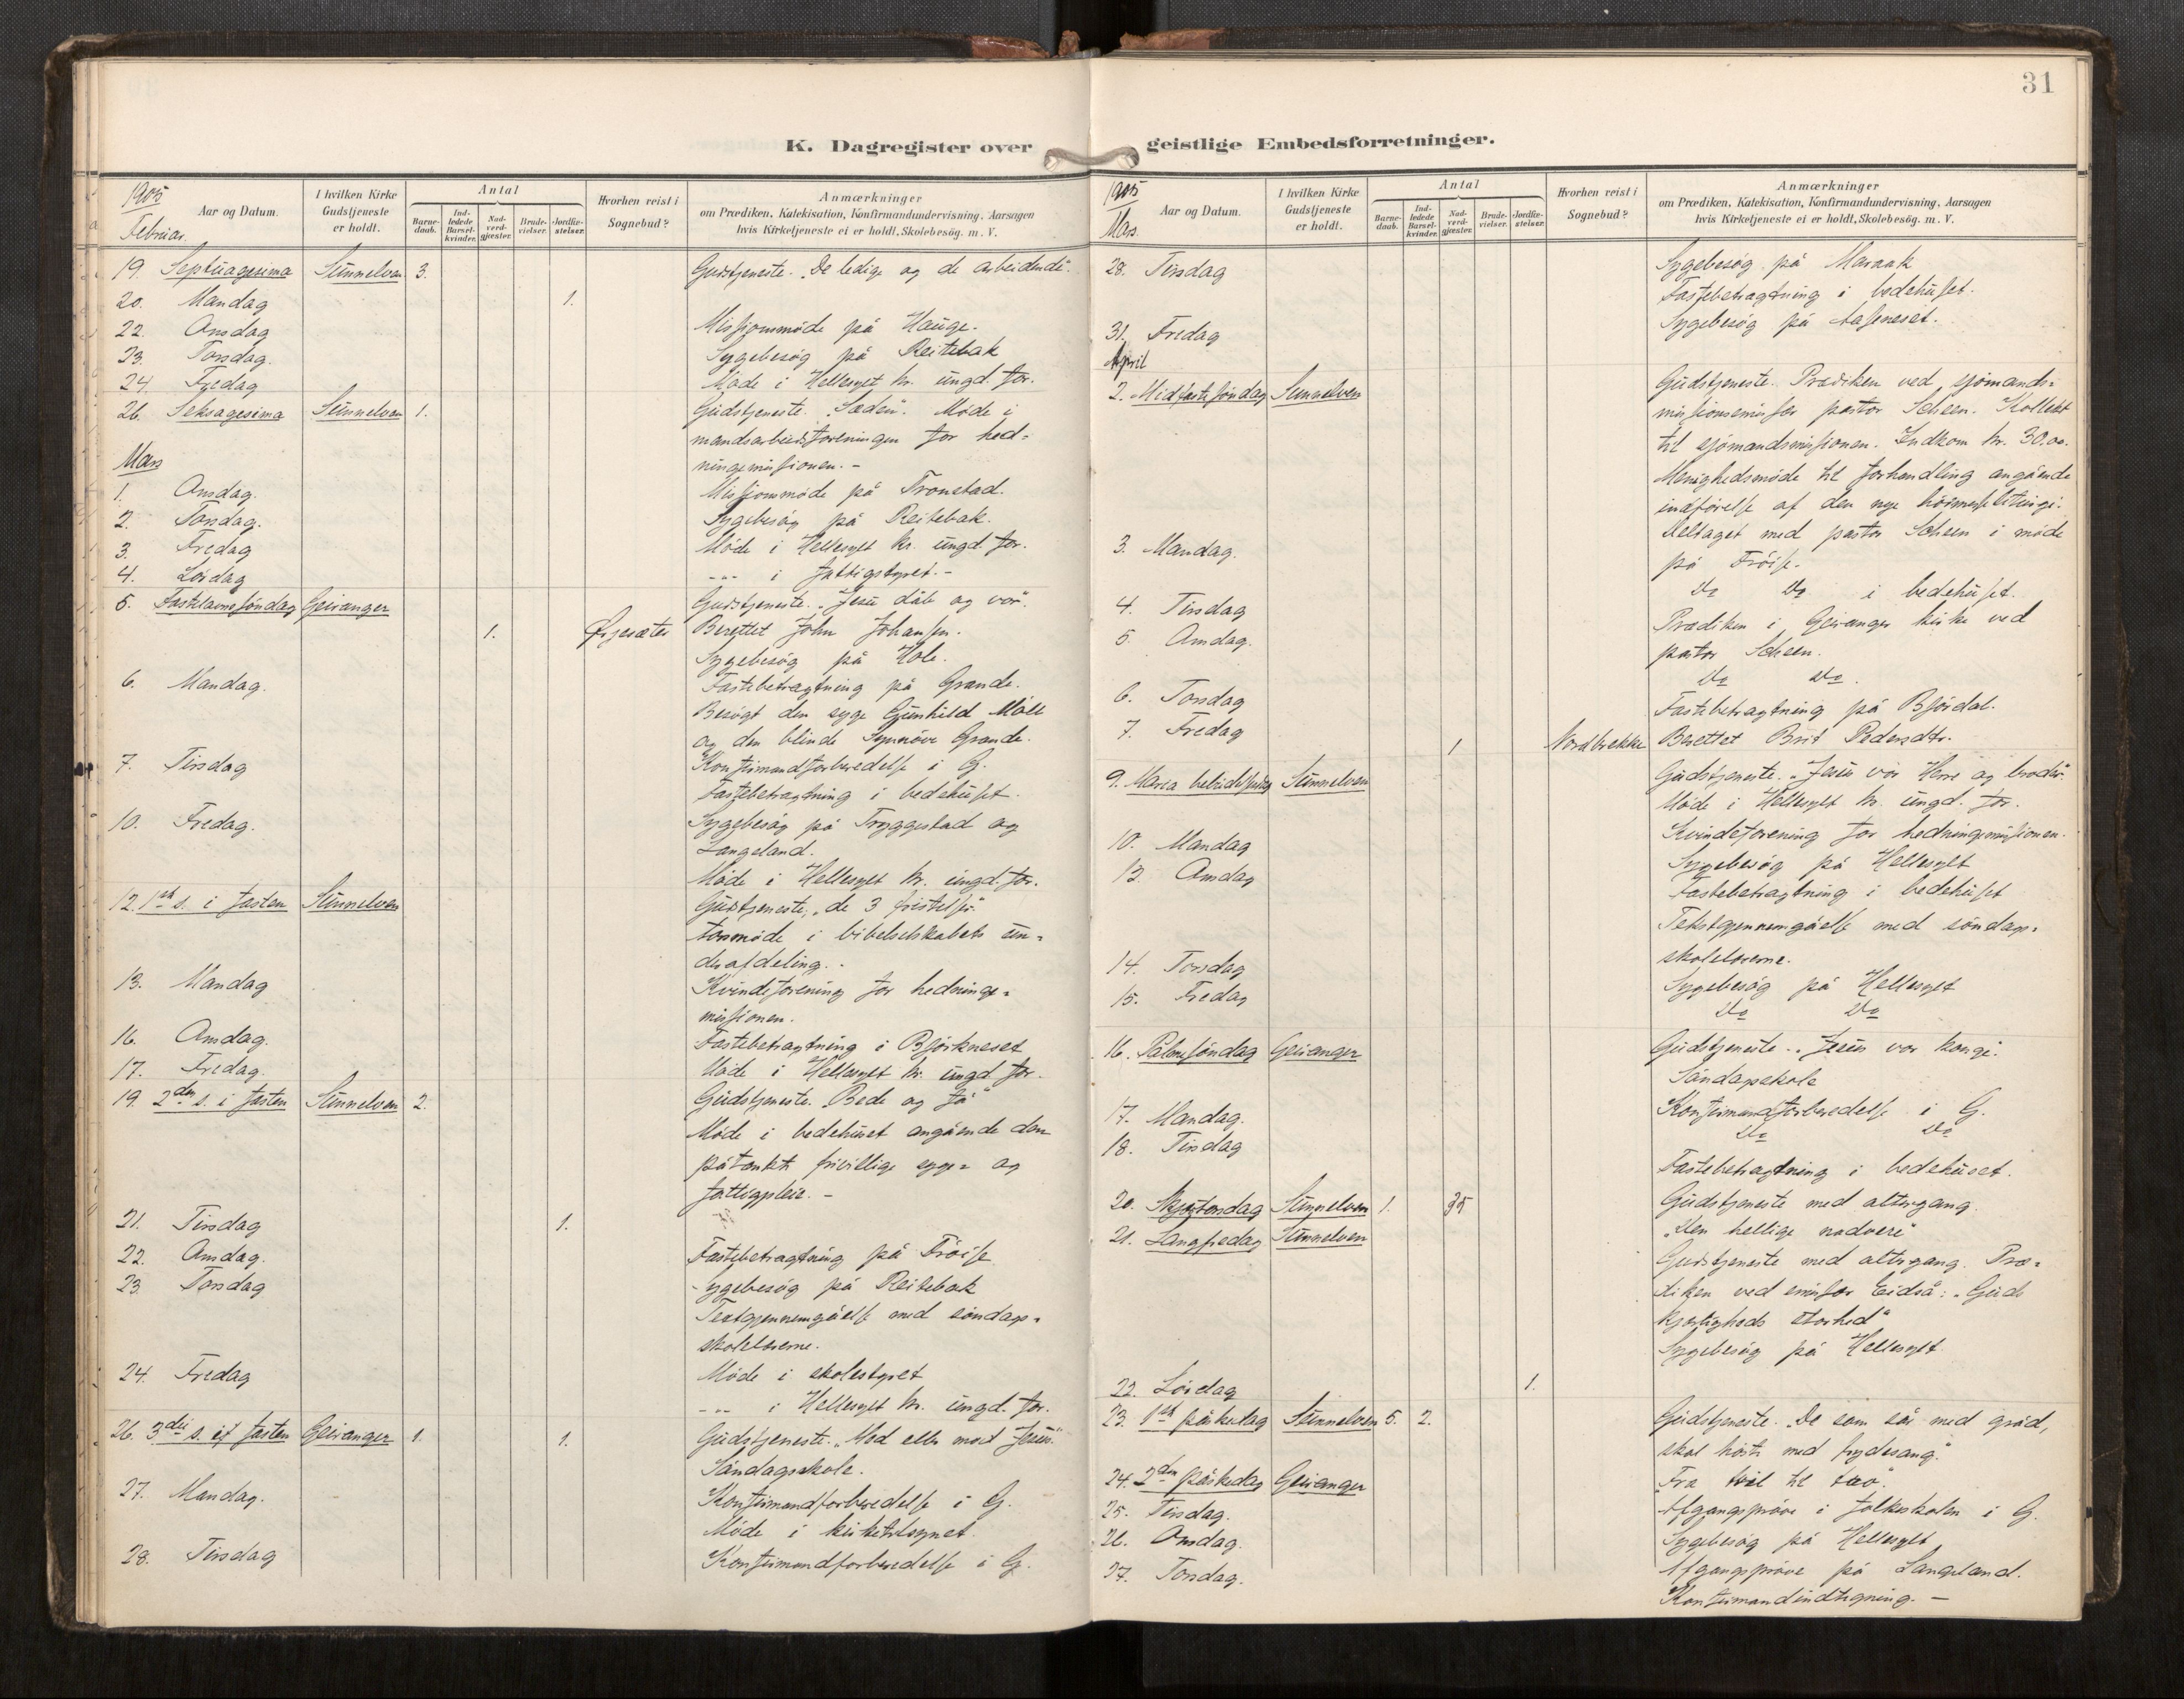 31
K. Dagregister over geistlige Embedsforretninger.
1905
Februar.
Aar og Datum.
I hvilken Kirke Gudstjeneste er holdt.
Antal
Barnedaab.
Indledede Barselkvinder.
Nadverdgjæster.
Brudevielser.
Jordfæstelser.
Hvorhen reist i Sognebud?
Anmærkninger
om Prædiken, Katekisation, Konfirmandundervisning, Aarsagen
hvis Kirketjeneste ei er holdt, Skolebesøg. m. V.
19. Septuagesima Sunnelven 3. Gudstjeneste. "De ledige og de arbeidende".
20. Mandag 1.
22. Onsdag Missionsmøde på Hauge.
23. Torsdag. Sygebesøg på Reitebak
24. Fredag Møde i Hellesylt kr. ungd. for.
26. Seksagesima Sunnelven 1. Gudstjeneste. "Sæden". Møde i
mandsarbeidsforeningen for hed-
ningemissionen. -
Mars
1. Onsdag. Missionsmøde på Tronstad.
2. Torsdag. Sygebesøg på Reitebak.
3. Fredag Møde i Hellesylt kr. ungd. for.
4. Lørdag -"- i fattigstyret. -
5. Fastelavnssøndag Geiranger Gudstjeneste. "Jesu dåb og vor".
1. Ørjesæter Berettet John Johansen.
Sygebesøg på Hole.
6. Mandag. Fastebetragtning på Grande.
Besøgt den syge Gunhild Møll
og den blinde Synnøve Grande.
7. Tirsdag Konfirmandforberedelse i G.
Fastebetragtning i bedehuset.
10. Fredag. Sygebesøg på Tryggestad og
Langeland.
Møde i Hellesylt kr. ungd. for.
12. 1ste s. i fasten Sunnelven Gudstjeneste, "de 3 fristelser".
Årsmøde i bibelselskabets un-
derafdeling. -
13. Mandag Kvindeforening for hedninge-
missionen.
16. Onsdag. Fastebetragtning i Bjørkneset
17. Fredag. Møde i Hellesylt kr. ungd. for.
19. 2den s. i fasten Sunnelven 2. Gudstjeneste. "Bede og få"
Møde i bedehuset angående den
påtænkte frivillige syge- og
fattigpleie. -
21. Tirsdag 1.
22. Onsdag. Fastebetragtning på Frøise
23. Torsdag Sygebesøg på Reitebak
Textgjennemgåelse med søndags-
skolelærerne.
24. Fredag Møde i skolestyret
-"- i Hellesylt kr. ungd. for.
26. 3die s. i fasten Geiranger 1. 1. Gudstjeneste. "Med eller mod Jesus."
Søndagsskole.
27. Mandag. Konfirmandforberedelse i G.
Møde i kirketilsynet.
28. Tirsdag Konfirmandforberedelse i G.
1905
Mars.
Aar og Datum.
I hvilken Kirke Gudstjeneste er holdt.
Antal
Barnedaab.
Indledede Barselkvinder.
Nadverdgjæster.
Brudevielser.
Jordfæstelser.
Hvorhen reist i Sognebud?
Anmærkninger
om Prædiken, Katekisation, Konfirmandundervisning, Aarsagen
hvis Kirketjeneste ei er holdt, Skolebesøg. m. V.
28. Tirsdag Sygebesøg på Maraak
Fastebetragtning i bedehuset.
31. Fredag Sygebesøg på
April
2. Midfastesøndag Sunnelven Gudstjeneste. Prædiken ved sjømands-
missionsemissær pastor Scheen. Kollekt
til sjømandsmissionen. Indkom kr. 30.00.
Menighedsmøde til forhandling angående
indførelse af den nye høimesseliturgi.
3. Mandag. Deltaget med pastor Scheen i møde
på Frøise.
4. Tirsdag Do Do i bedehuset.
5. Onsdag. Prædiken i Geiranger kirke ved
pastor Scheen.
6. Torsdag Do Do.
7. Fredag Fastebetragtning på Bjørdal.
1 Nordbrekke Berettet Brit Pedersdtr.
9. Maria bebudelsesdag Sunnelven Gudstjeneste. "Jesus vor Herre og broder".
Møde i Hellesylt kr. ungd. for.
10. Mandag Kvindeforening for hedningemissionen.
Sygebesøg på Hellesylt
12. Onsdag Fastebetragtning i bedehuset
Tekstgjennemgåelse med søndags-
skolelærerne.
14. Torsdag Sygebesøg på Hellesylt
15. Fredag Do Do
16. Palmesøndag Geiranger Gudstjeneste. "Jesus vor konge".
Søndagsskole
17. Mandag. Konfirmandforberedelse i G.
18. Tirsdag Do Do
Fastebetragtning i bedehuset.
20. Skjærtorsdag Sunnelven 1. 35 Gudstjeneste med altergang.
"Den hellige nadvere"
21. Langfredag Sunnelven Gudstjeneste med altergang. Præ-
diken ved emissær Eidså: "Guds
kjærligheds storhed"
Sygebesøg på Hellesylt.
22. Lørdag 1.
23. 1ste påskedag Sunnelven 5. 2. Gudstjeneste. "De som sår med gråd,
skal høste med frydesang."
24. 2den påskedag Geiranger "Fra tvil til tro".
25. Tirsdag. Afgangsprøve i folkeskolen i G.
26. Onsdag. Sygebesøg på Hellesylt
27. Torsdag. Afgangsprøve på Langeland.
Konfirmandindtegning. -